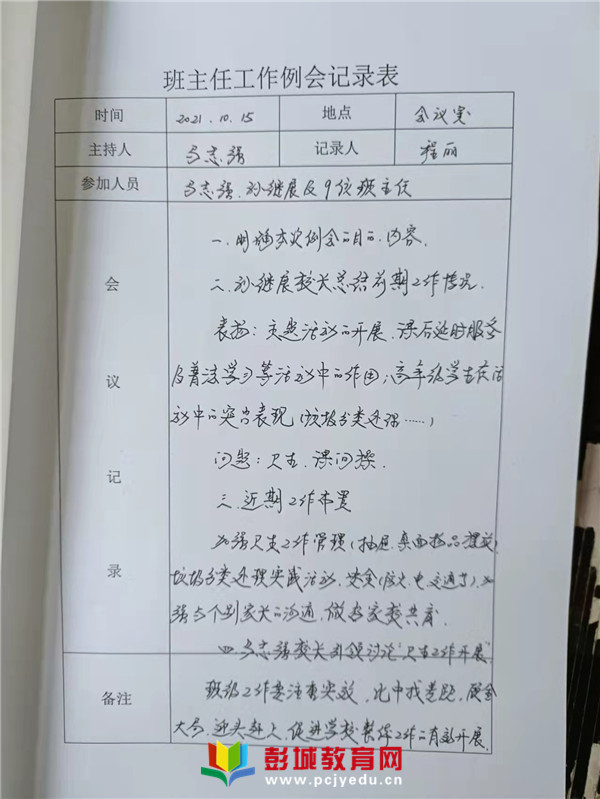 班主任工作例会记录表
时间 2021.10.15 地点 会议室
主持人 马志强 记录人 程丽
参加人员 马志强、孙继展及9位班主任
会议记录
一、明确本次例会的目的、内容。
二、孙继展校长总结前期工作情况。
表扬：主题活动的开展、课后延时服务
及普法学习等活动中的作用；高年级学生在活
动中的突出表现（垃圾分类处理……）
问题：卫生、课间操。
三、近期工作布置
加强卫生工作管理（抽屉、桌面物品摆放）
垃圾分类处理实践活动，安全（防火、电、交通等），加
强与个别家长的沟通，做好家校共育。
四、马志强校长引领讨论“卫生工作开展”
备注
班级工作要注重实效，比中找差距，顾全
大局，迎头赶上，促进学校整体工作的有效开展。
彭城教育网
www.pcjyedu.cn